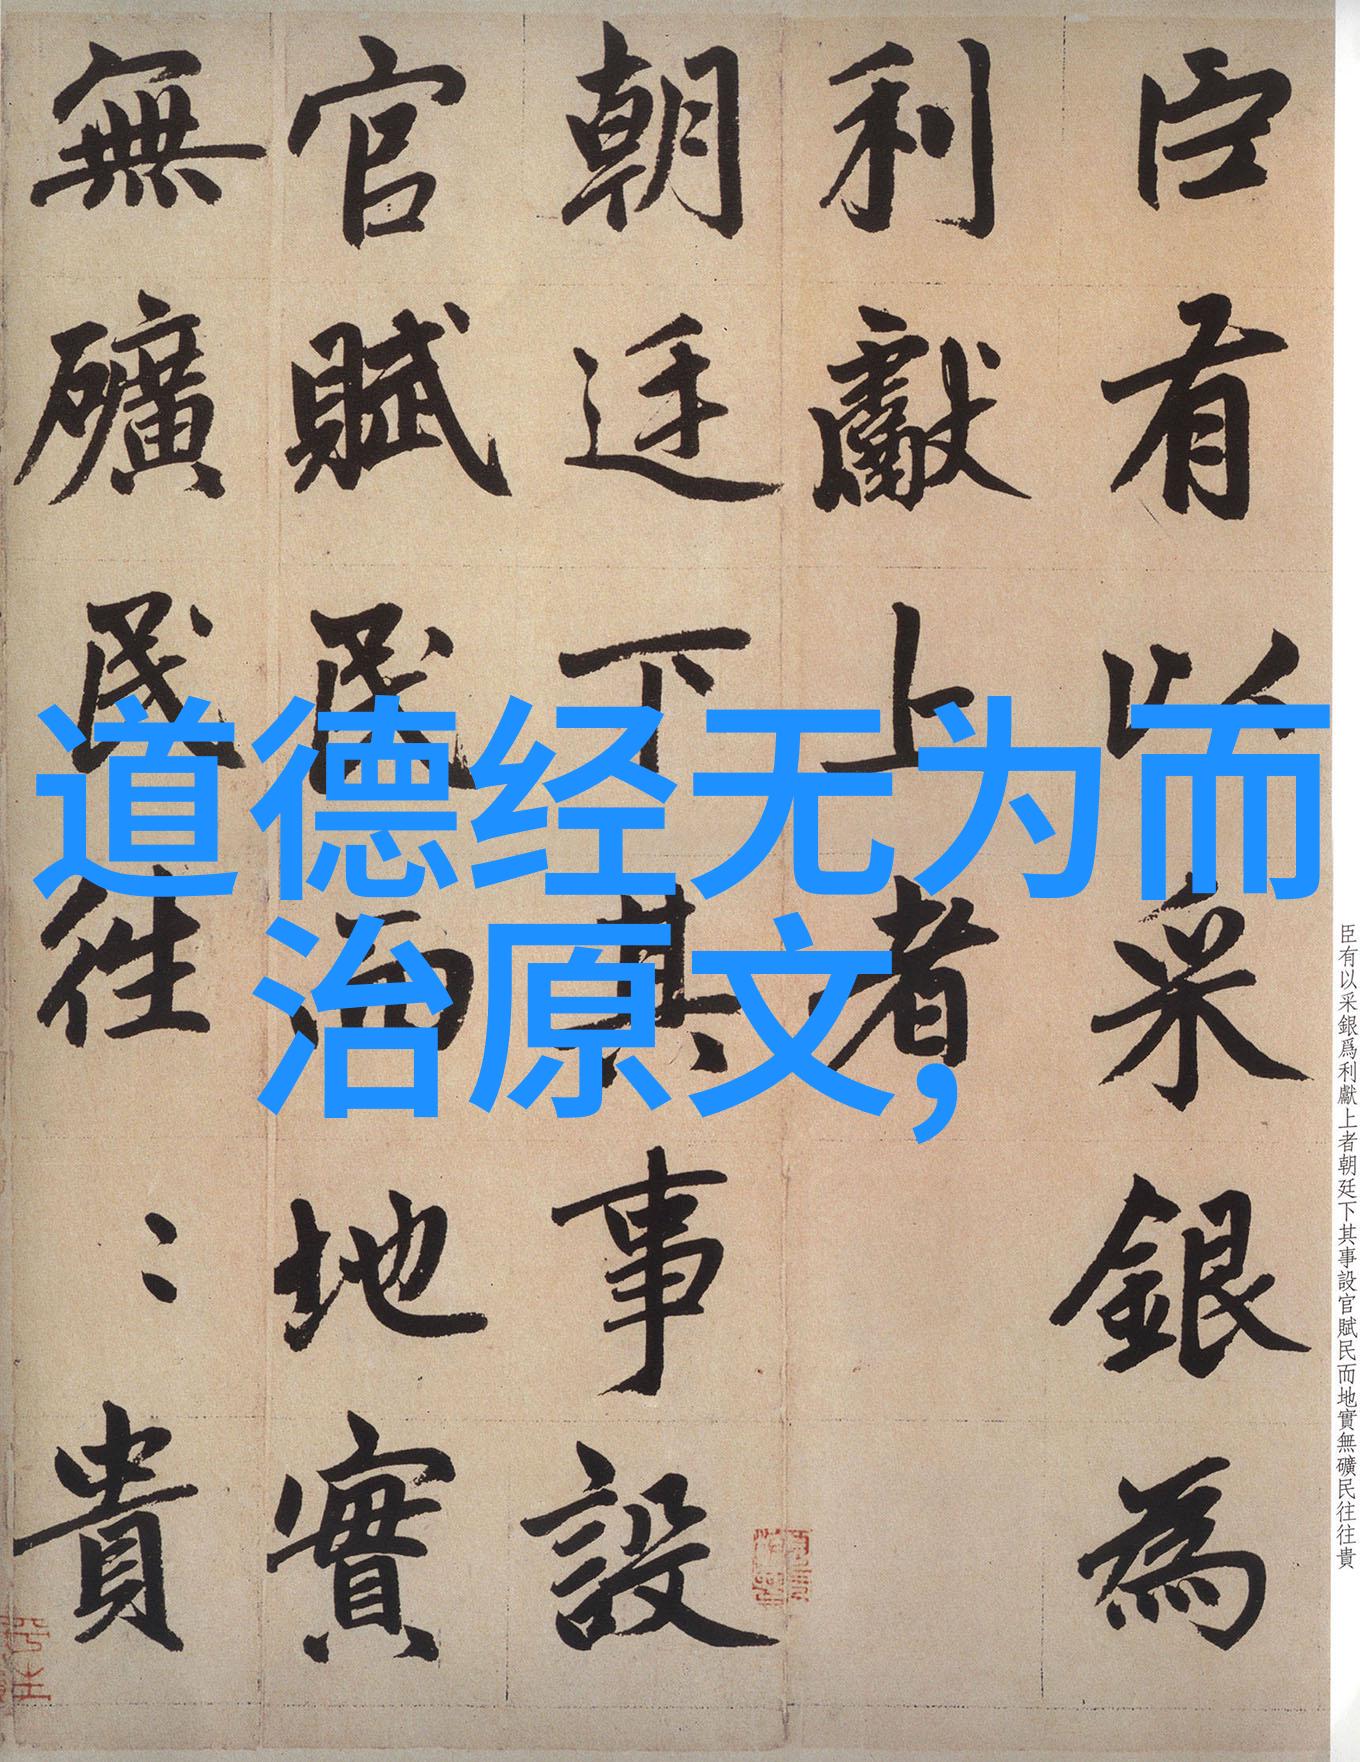 臣有以采銀為
利獻上者
朝廷下其事設
官賦民而地實
無礦民往〻貴
道德经无为而
治原文,
臣有以采銀爲利獻上者朝廷下其事設官賦民而地實無礦民往往貴